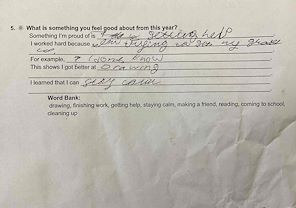 5. What is something you feel good about from this year?
Something I'm proud of is getting help
I worked hard because trying to do my
For example, ? I dont know
This shows I got better at Drawing
I learned that I can stay calm
Word Bank:
drawing, finishing work, getting help, staying calm, making a friend, reading, coming to school,
cleaning up